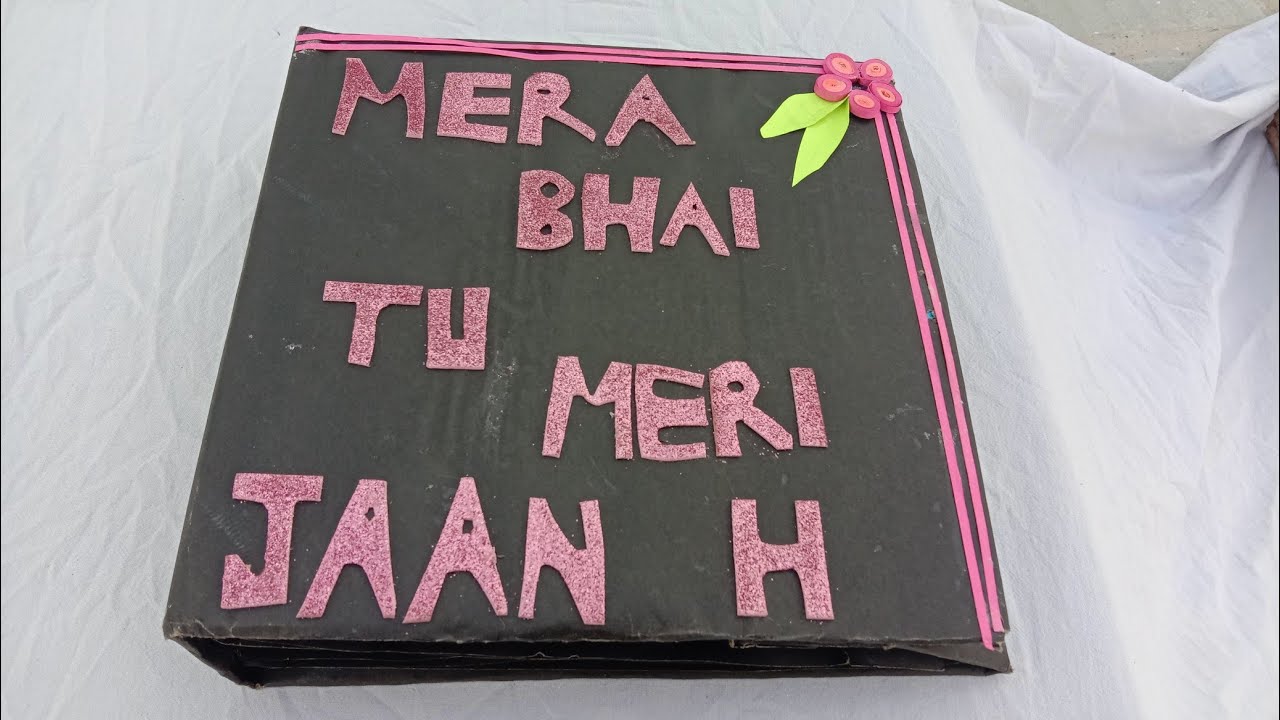 MERA
BHAI
TU
MERI
JAAN H